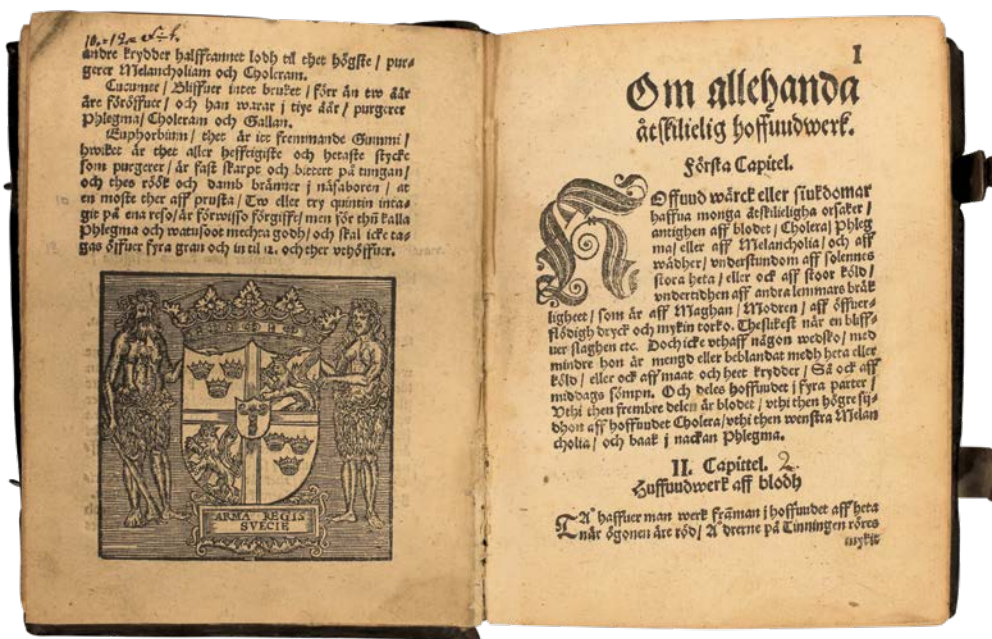 andre krydder halfftannet lodh til thet högste / pur-
gerer Melancholiam och Choleram.
Cucumer / Bliffuer intet bruket / förr än tw åår
äre föröffuer / och han warar j tiye åår / purgerer
Phlegma / Choleram och Gallan.
Euphorbium / thet är itt fremmande Gummi /
hwilket är thet aller hefftigiste och hetaste stycke
som purgerer / är fast skarpt och bittert på tungan /
och thes röök och damb bränner j näsaboren / at
en moste ther aff pruska / Tw eller try quintin inta-
git på ena reso / är förwisso förgifft / men för thũ kalla
Phlegma och watusoot mechta godh / och skal icke ta-
gas öffuer fyra gran och in til 12. och ther vthöffuer.
ARMA REGIS
SVECIE
I
Om allehanda
åtskilielig hoffuudwerk.
Första Capitel.
HOffuud wärck eller siukdomar
haffua monga åtskilieligha orsaker /
antighen aff blodet / Cholera / Phleg
ma / eller aff Melancholia / och aff
wädher / vnderstundom aff solennes
stora heta / eller ock aff stoor köld /
vndertidhen aff andra lemmars bräk
ligheet / som är aff Maghan / Modren / aff öffuer-
flödigh dryck och mykin torko. Theslikest när en bliff-
uer slaghen etc. Doch icke vthaff någon wedsko / med
mindre hon är mengd eller beblandat medh heta eller
köld / eller ock aff maat och heet krydder / Så ock aff
middags sömpn. Och deles hoffuudet j fyra parter /
Vthi then frembre delen är blodet / vthi then högre sij-
dhon aff hoffuudet Cholera / vthi then wenstra Melan
cholia / och baak j nackan Phlegma.
II. Capittel. 2.
Huffuudwerk aff blodh
TÅ haffuer man werk främan j hoffuudet aff heta
när ögonen äre röd / Ådrerne på Tinningen röres
mykit